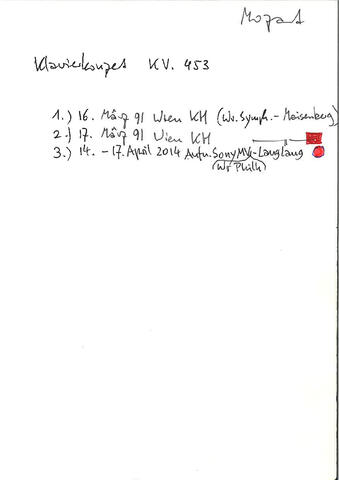 Mozart
Klavierkonzert KV. 453
1.) 16. März 91 Wien KH (Wr. Symph. - Maisenberg)
2.) 17. März 91 Wien KH —"—
3.) 14. - 17. April 2014 Aufn. Sony MV - Lang Lang
(Wr Philh)